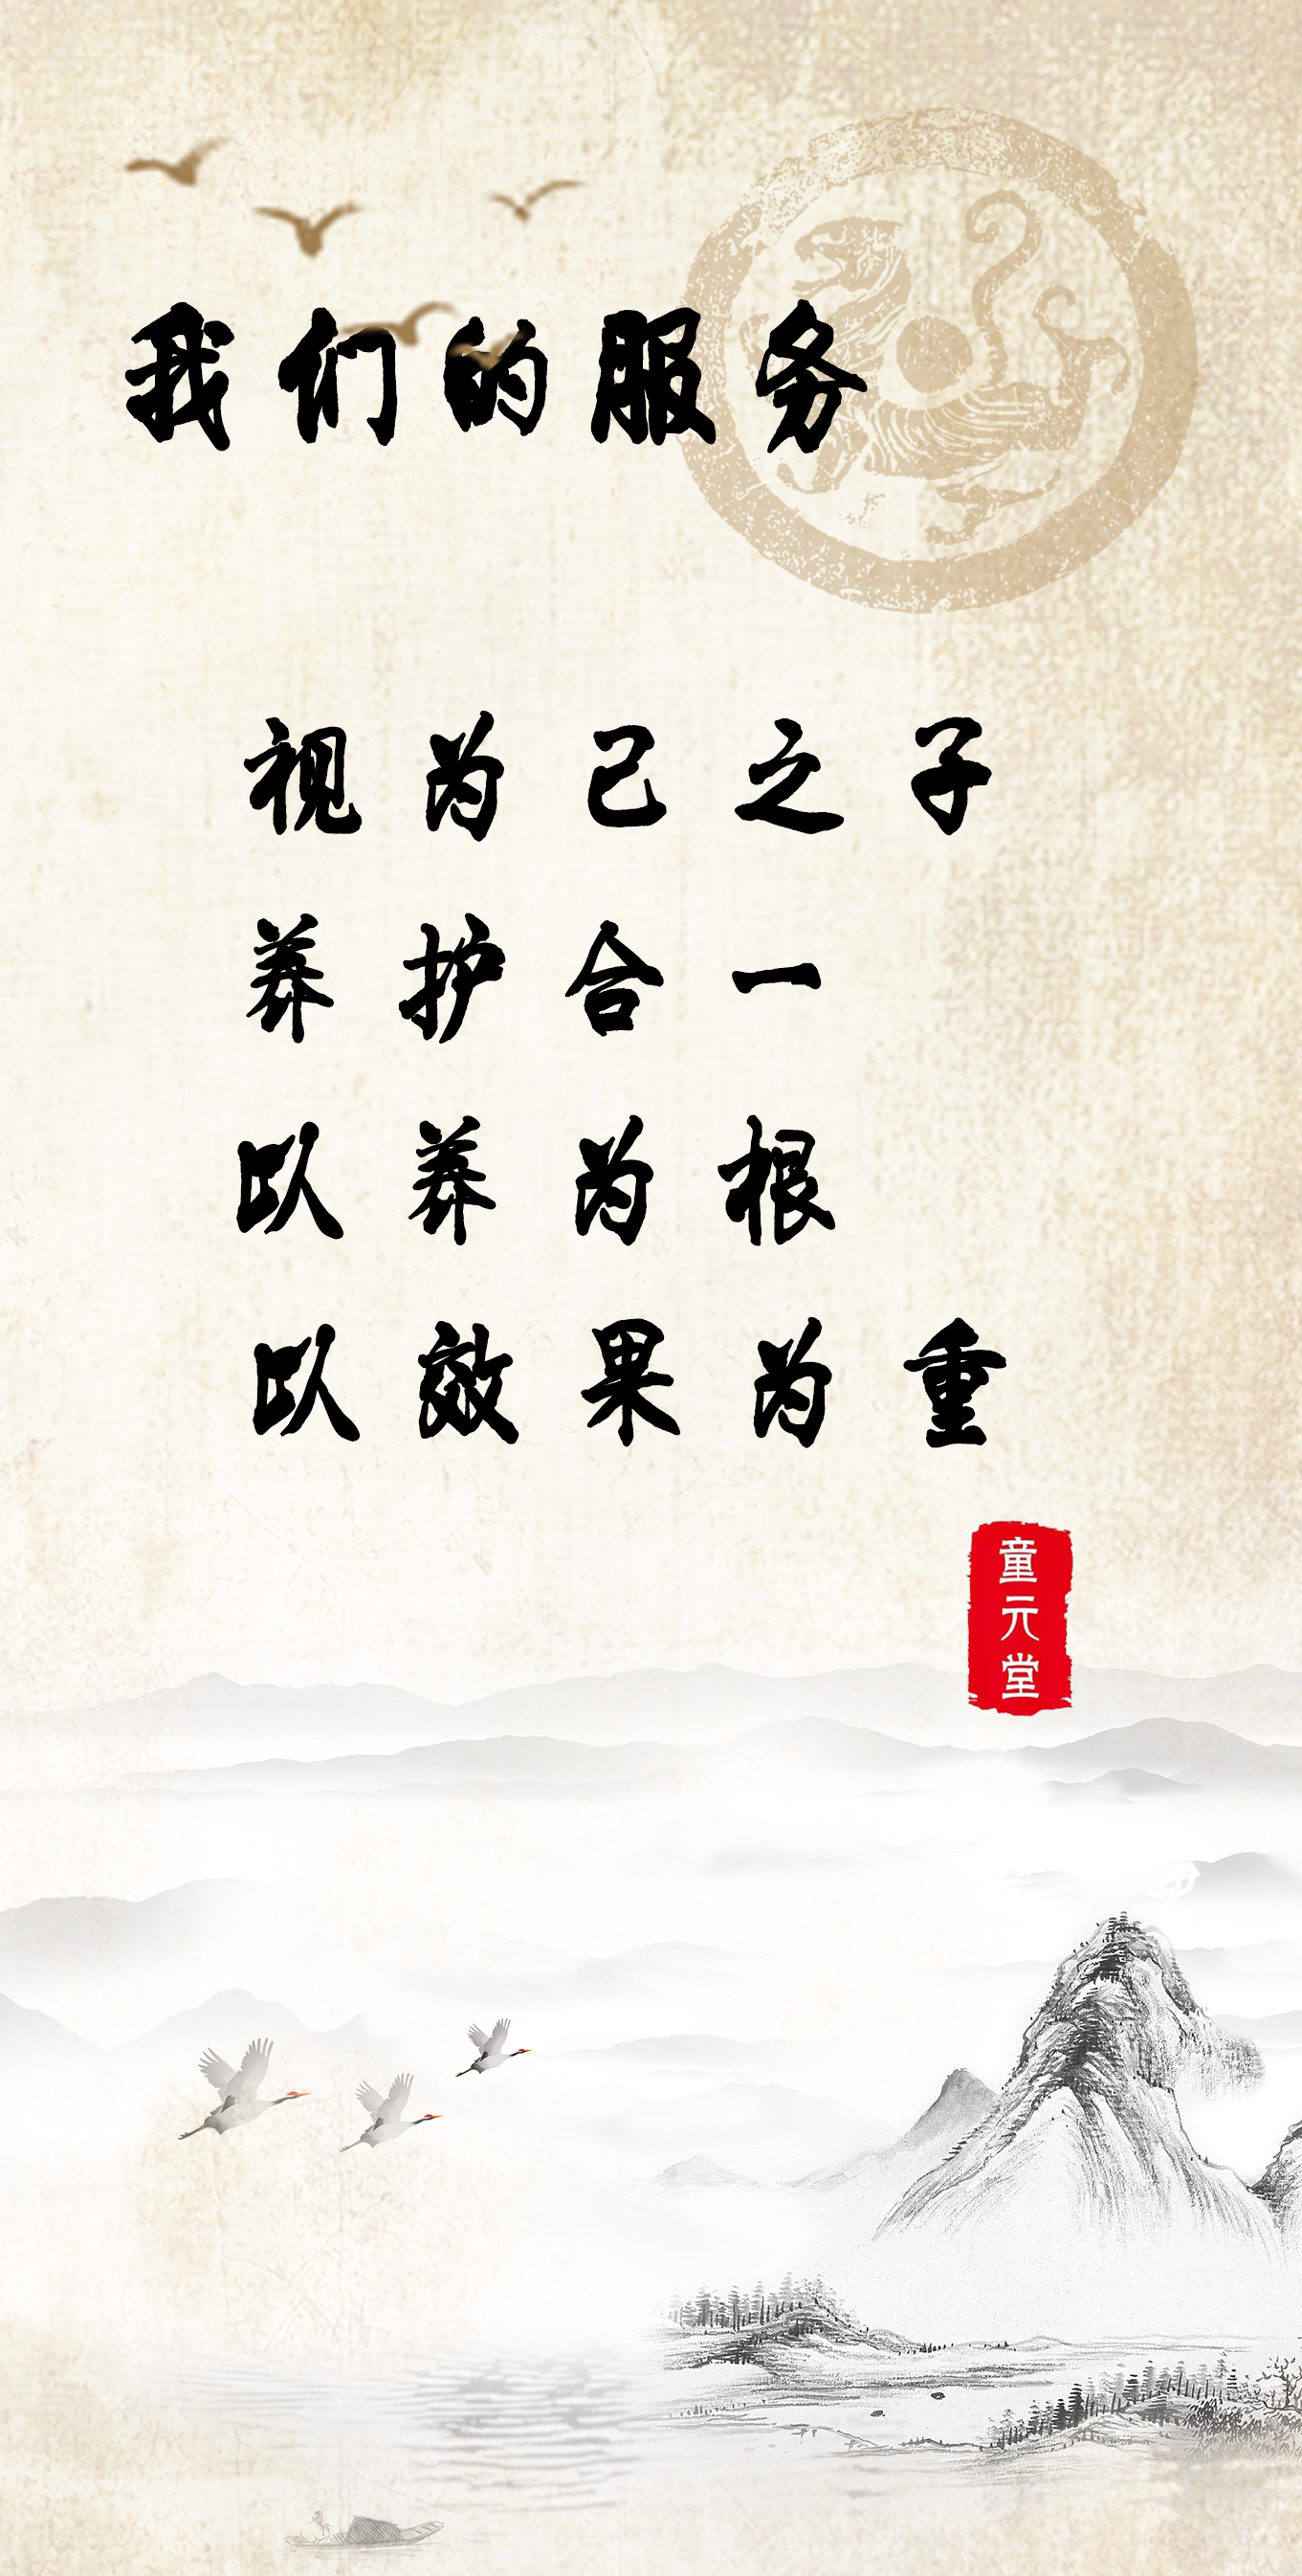 我们的服务
视为己之子
养护合一
以养为根
以效果为重
童元堂